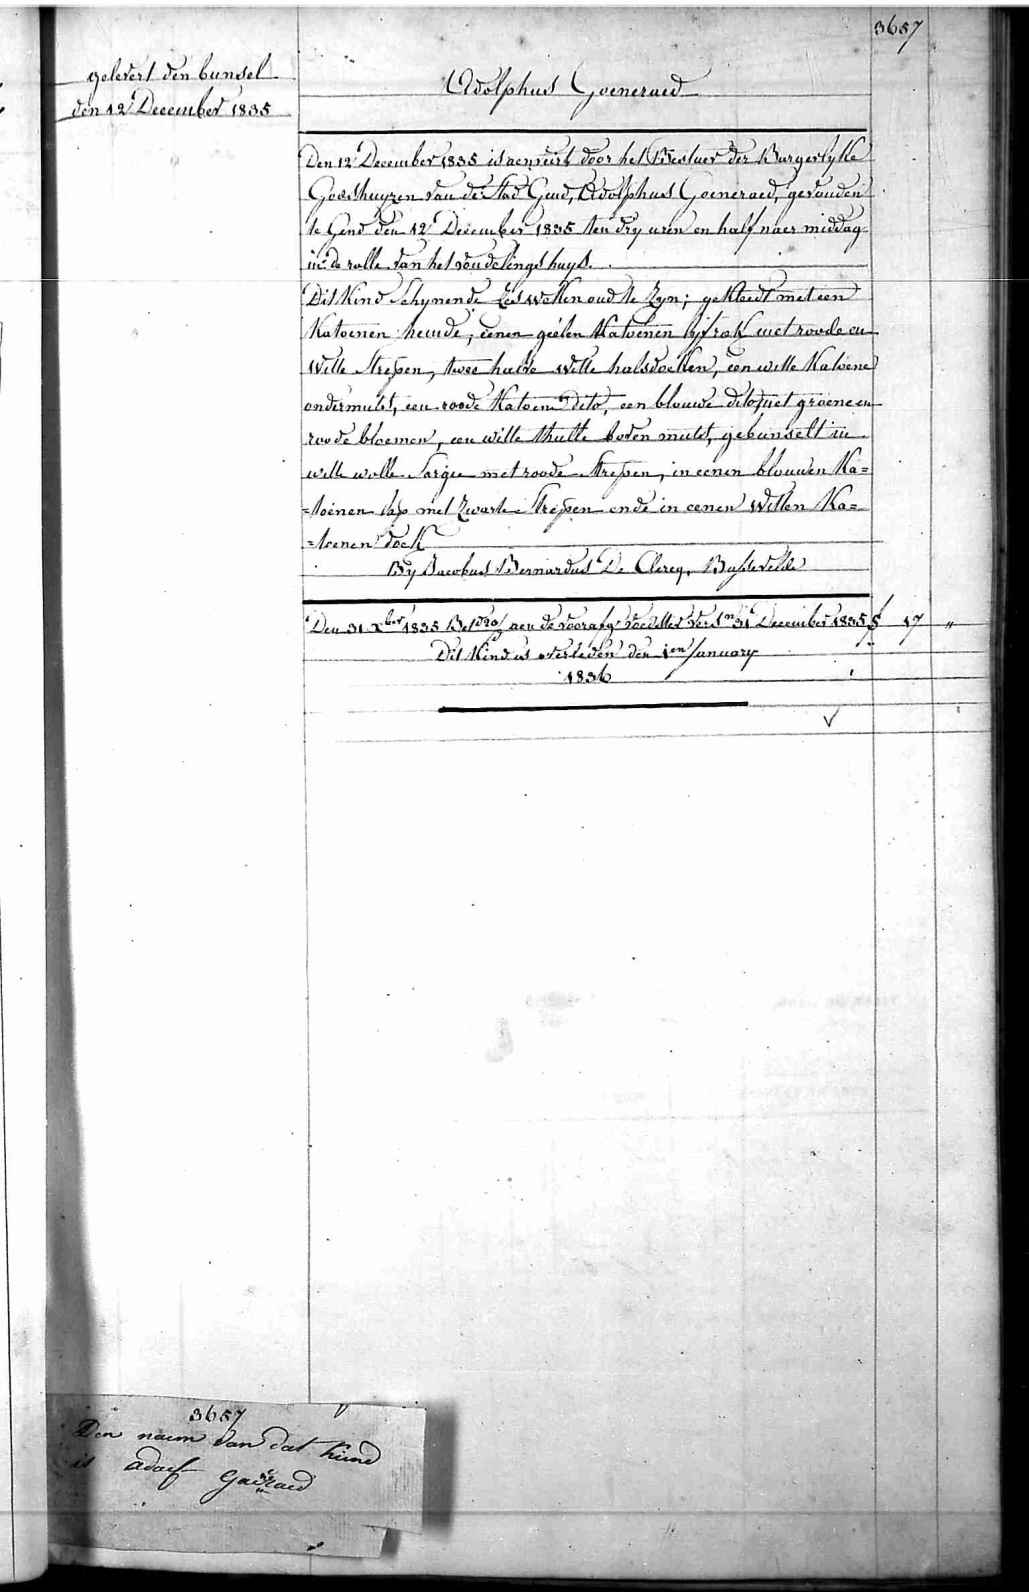 3657
gelevert den bunsel
den 12 December 1835
Adolphus Goeneraed
Den 12 December 1835 is aenveirt door het Bestuer der Burgerlyke
Godshuyzen van de Stad Gend, Adolphus Goeneraed, gevonden
te Gend den 12 December 1835 ten dry uren en half naer middag
in de rolle van het vondelingshuys.
Dit Kind Schynende zes weken oud te Zyn; gekleedt met een
Katoenen hemde, eenen geélen Katoenen lyfrok met roode en
Witte Strepen, twee halve Witte halsdoeken, een witte Katoene
ondermuts, een roode Katoene Dito, een blouwe dito met groene en
roode bloemen, een witte thulle boven muts, gebunselt in
witte wolle Sargie met roode Strepen, in eenen blouwen Ka=
=toenen lap met Zwarte Strepen ende in eenen Witten Ka=
=toenen doek
By Jacobus Bernardus De Clercq, Bassevelde
Den 31 Xber 1835 aen de voorsg voedster 31 December 1835 17 "
Dit Kind is overleden den 1en January
1836
3657
Den naem van dat Kind
is adolf